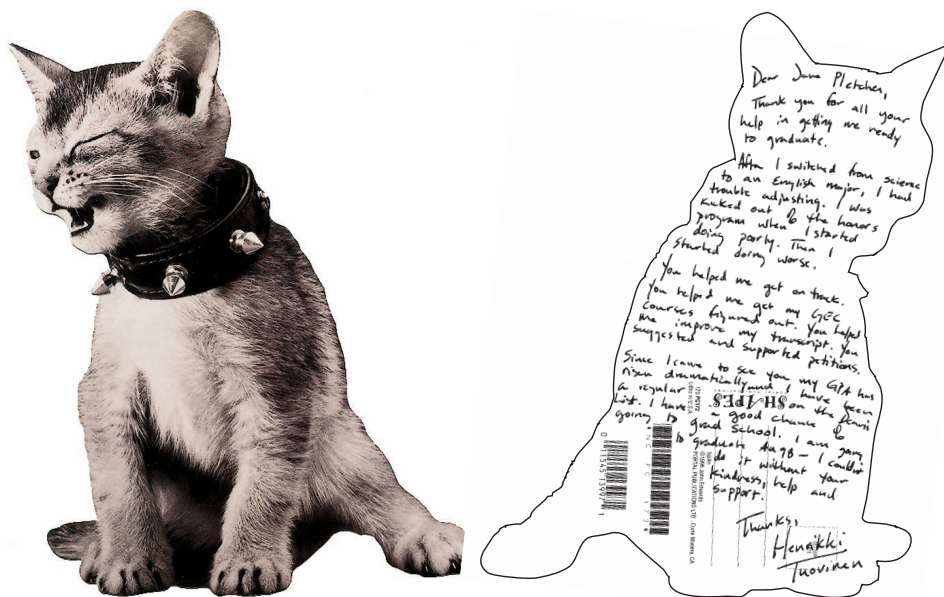 Dear Jane Pletcher,
Thank you for all your
help in getting me ready
to graduate.
After I switched from science
to an English major, I had
trouble adjusting. I was
kicked out of the honors
program when I started
doing poorly. Then I
started doing worse.
You helped me get on track.
You helped me get my GEC
courses figured out. You helped
me improve my transcript. You
suggested and supported petitions.
Since I came to see you, my GPA has
risen dramatically and I have been
a regular on the Dean's
list. I have a good chance of
going to grad school. I am going
to graduate Au 98 – I couldn't
do it without your
kindness, help and
support.
Thanks,
Henrikki
Tuovinen
SHAPES
©1996 John Edwards
PORTAL PUBLICATIONS LTD · Corte Madera, CA